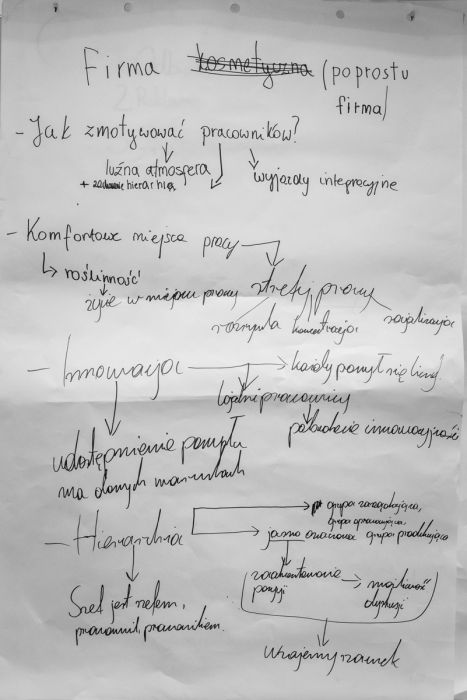 Firma kosmetyczna (poprostu
firma)
- Jak zmotywować pracowników?
luźna atmosfera
+ zachowanie hierarchia
wyjazdy integracyjne
- Komfortowe miejsce pracy
roślinność
życie w miejscu pracy
strefy pracy
rozrywka
koncentracja
socjalizacja
- Innowacja
każdy pomysł się liczy
lojalni pracownicy
udostępnienie pomysłu
na danych warunkach
- Hierarchia
grupa zarządzająca,
grupa opracowująca,
jasno oznaczona grupa produkująca
możliwość
pozycji
dyskusji
Szef jest szefem,
pracownik, pracownikiem.
wzajemny szacunek